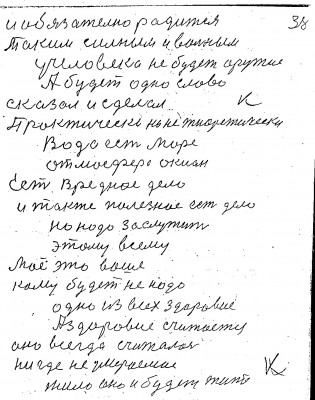 и обязателно родится 38
Таким силным и важным
человека не будет оружие
А будет одно слово
сказал и сделал К
Практически но не теоретически
Вода ест море
отмосфера окиан
Ест вредное дело
и также полезное ест дело
но надо заслужит
этому всему
Моё это ваше
кому будет не надо
одно из всех здоровие
А здоровие считает
оно всегда считалос
ни где не умераемое К
жило оно и будет жит